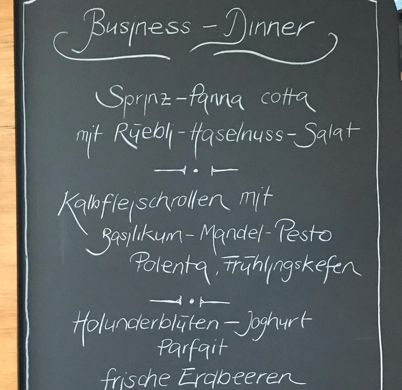 Business – Dinner
Sprinz – Panna cotta
mit Rüebli – Haselnuss – Salat
Kalbfleischrollen mit
Basilikum – Mandel – Pesto
Polenta, Frühlingskefen
Holunderblüten – Joghurt
Parfait
frische Erdbeeren